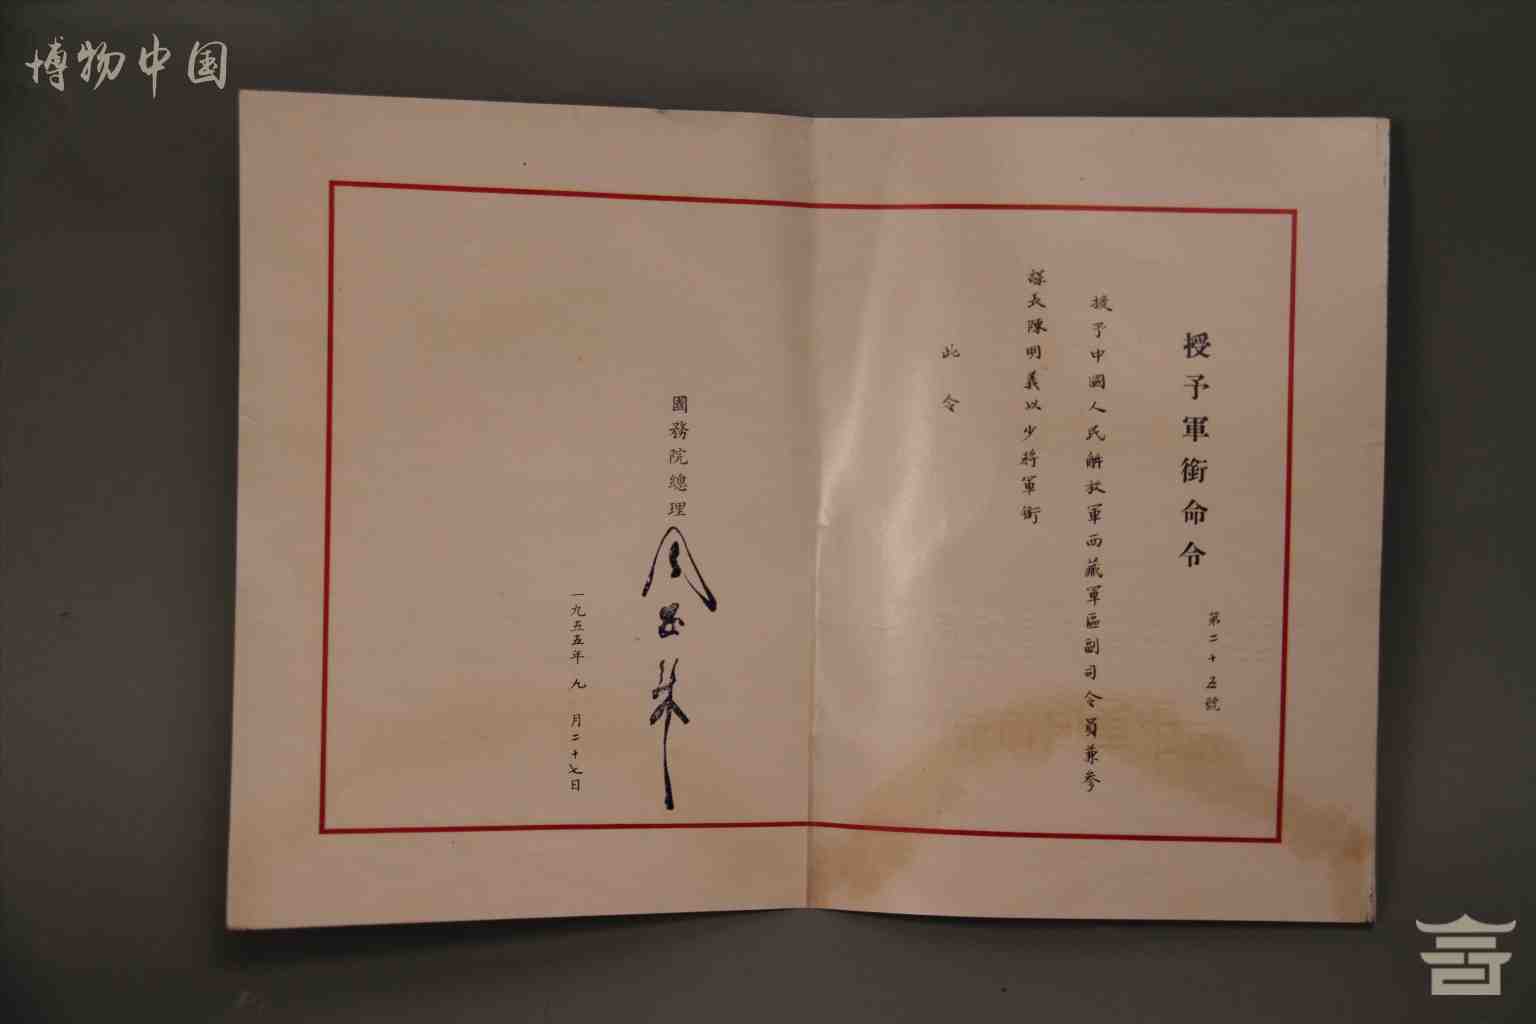 博物中国
授予軍銜命令
第二十五號
授予中國人民解放軍西藏軍區副司令員兼參
謀長陳明義以少將軍銜
此令
國務院總理
周恩來
一九五五年九月二十七日